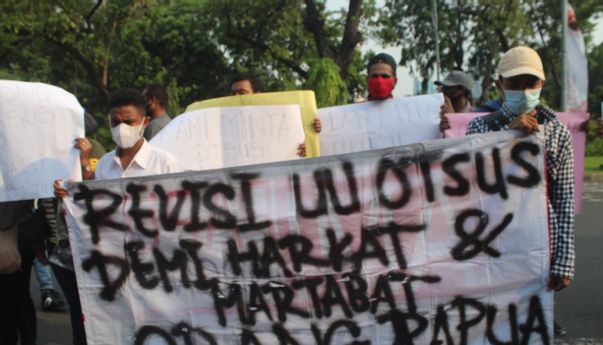 KAMI MINTA
OTSUS
REVISI UU OTSUS
DEMI HARKAT &
MARTABAT
ORANG PAPUA